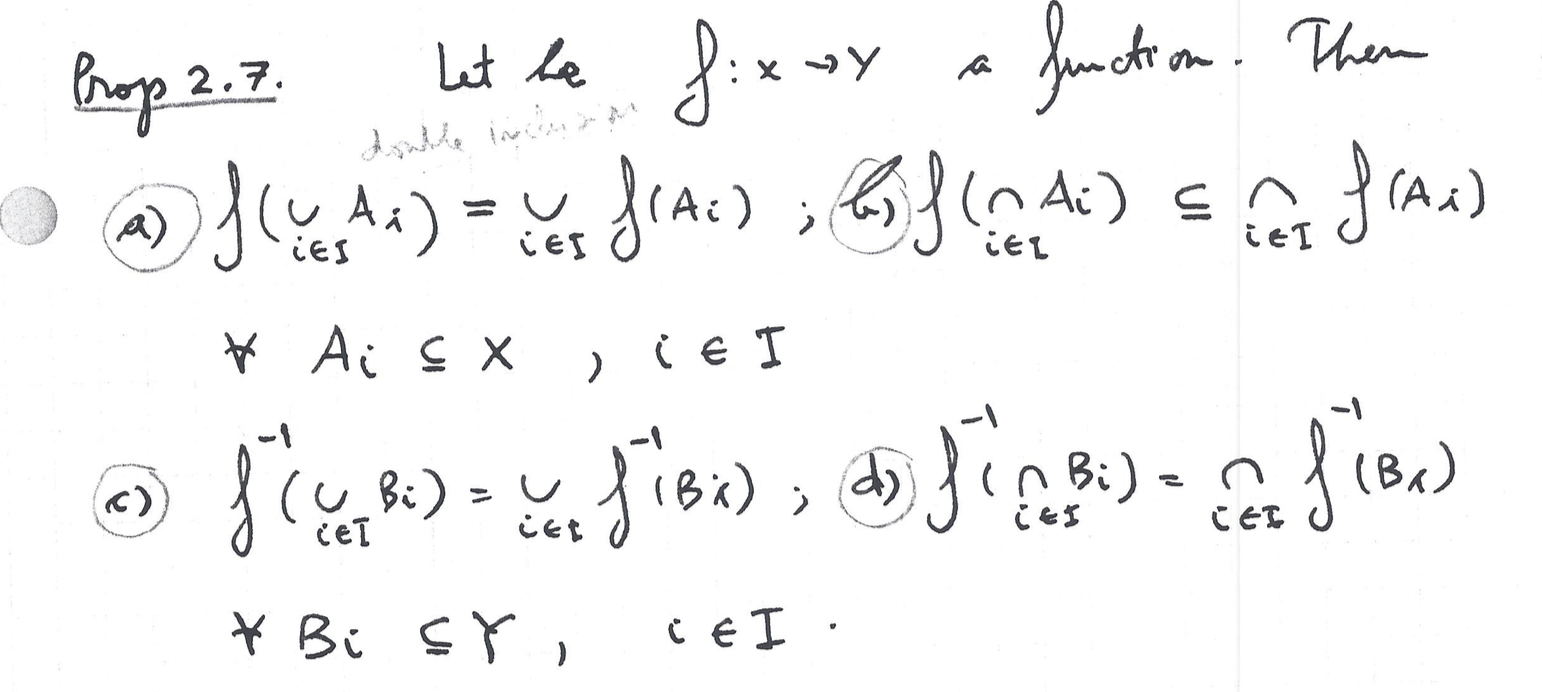 Prop 2.7. Let be f: X → Y a function. Then
double inclusion
a) f(∪_{i∈I} A_i) = ∪_{i∈I} f(A_i) ; b) f(∩_{i∈I} A_i) ⊆ ∩_{i∈I} f(A_i)
∀ A_i ⊆ X , i ∈ I
c) f^{-1}(∪_{i∈I} B_i) = ∪_{i∈I} f^{-1}(B_i) ; d) f^{-1}(∩_{i∈I} B_i) = ∩_{i∈I} f^{-1}(B_i)
∀ B_i ⊆ Y , i ∈ I .